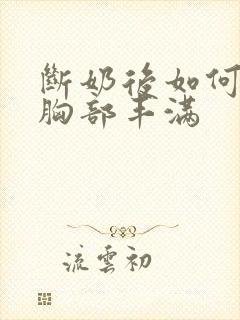 斷奶後如何
胸部丰满
流雲初